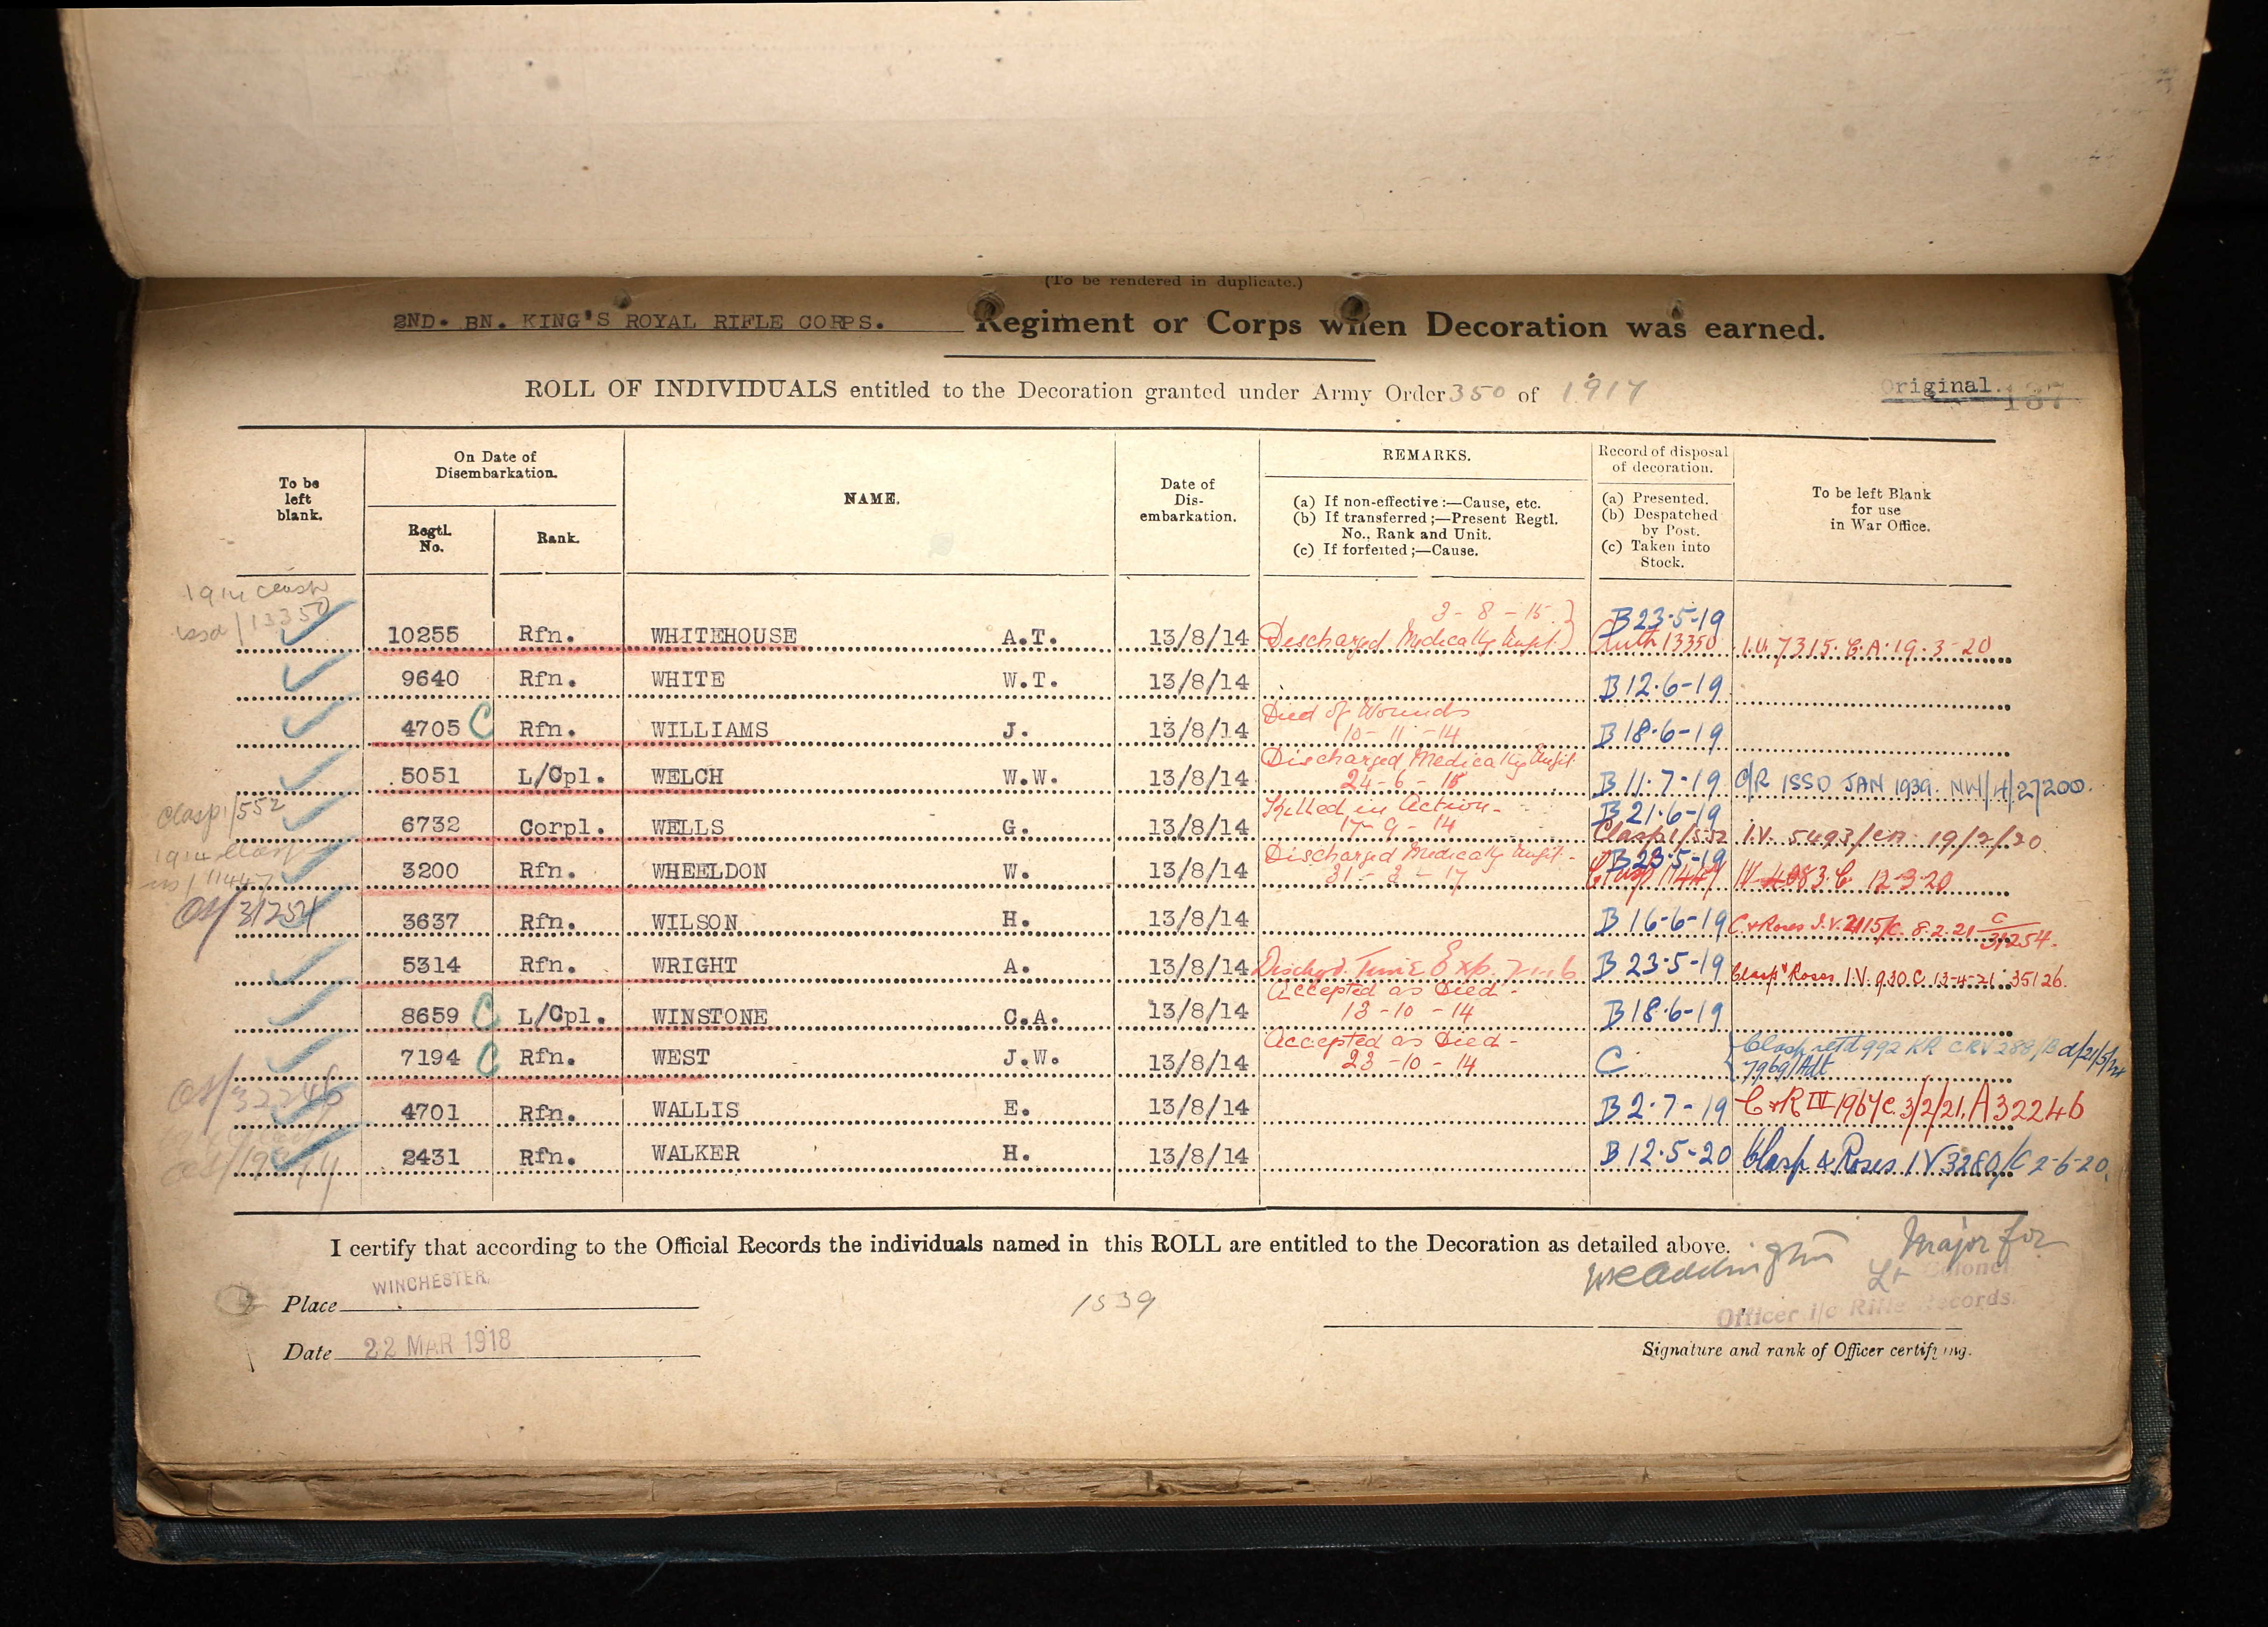 (To be rendered in duplicate.)
2ND. BN. KING'S ROYAL RIFLE CORPS. Regiment or Corps when Decoration was earned.
ROLL OF INDIVIDUALS entitled to the Decoration granted under Army Order 350 of 1917
Original. 137
To be left blank.
On Date of Disembarkation.
Regtl. No.
Rank.
NAME.
Date of Dis-embarkation.
REMARKS.
(a) If non-effective:—Cause, etc.
(b) If transferred;—Present Regtl. No., Rank and Unit.
(c) If forfeited;—Cause.
Record of disposal of decoration.
(a) Presented.
(b) Despatched by Post.
(c) Taken into Stock.
To be left Blank for use in War Office.
1914 Clasp
issd/13350 10255 Rfn. WHITEHOUSE A.T. 13/8/14 3-8-15 Discharged Medically Unfit B 23-5-19 Auth 13350 I.V. 7315. E.A. 19-3-20
9640 Rfn. WHITE W.T. 13/8/14 B 12-6-19
4705 C Rfn. WILLIAMS J. 13/8/14 Died of Wounds 10-11-14 B 18-6-19
5051 L/Cpl. WELCH W.W. 13/8/14 Discharged Medically Unfit 24-6-15 B 11-7-19 C/R ISSD JAN 1939. NW/4/27200.
Clasp 1/552 6732 Corpl. WELLS G. 13/8/14 Killed in Action 17-9-14 B 21-6-19 Clasp 1/552 I.V. 5493/ 19/2/20.
1914 Clasp
11447 3200 Rfn. WHEELDON W. 13/8/14 Discharged Medically Unfit 31-3-17 B 23-5-19 Clasp 11447 IV 4083.C 12-3-20
31254 3637 Rfn. WILSON H. 13/8/14 B 16-6-19 C & Roses I.V. 2115/C. 8.2.21 C/31254.
5314 Rfn. WRIGHT A. 13/8/14 Dischgd. Time Exp. B 23-5-19 Clasp & Roses I.V. 930 C 13-4-21 35126.
8659 C L/Cpl. WINSTONE C.A. 13/8/14 Accepted as Died 13-10-14 B 18-6-19
7194 C Rfn. WEST J.W. 13/8/14 Accepted as Died 23-10-14 C Clasp retd 992 KR CRV 288/B 7969/Adt
32246 4701 Rfn. WALLIS E. 13/8/14 B 2-7-19 C & R IV 1967C. 3/2/21. A 32246
2431 Rfn. WALKER H. 13/8/14 B 12-5-20 Clasp & Roses I V 3280/C 2-6-20.
I certify that according to the Official Records the individuals named in this ROLL are entitled to the Decoration as detailed above.
Major for
Lt Colonel
Officer i/c Rifle Records.
Place WINCHESTER.
1539
Date 22 MAR 1918
Signature and rank of Officer certifying.